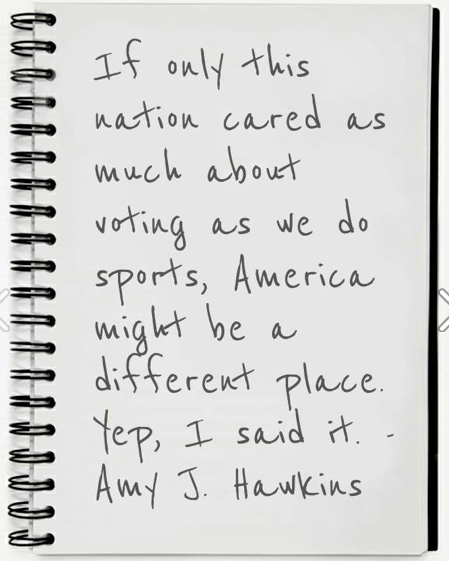 If only this
nation cared as
much about
voting as we do
sports, America
might be a
different place.
Yep, I said it. -
Amy J. Hawkins